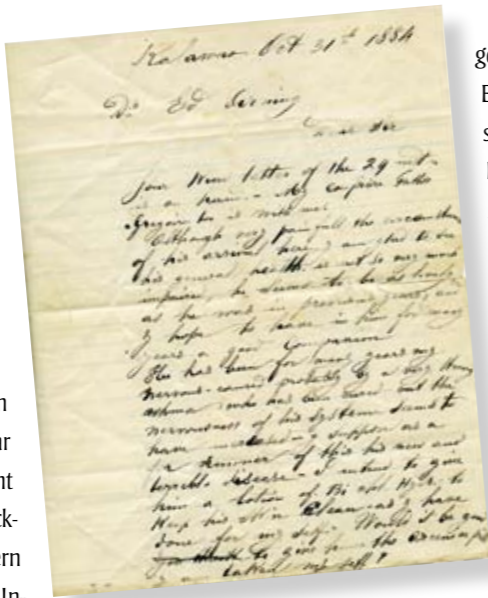 Kalawao Oct 31st 1884
Dr Ed Arning
Dear Sir
Your Wellcome letter of the 29 inst
is at hand - My confrère Father
Gregoire is with me
Although very painfull the circumstances
of his arrival here, I am glad to see
his general health is not so very much
impaired, he seems to be as lively
as he was in previous years, and
I hope to have in him for many
years a good companion
He has been for many years very
nervous - caused probably by a long
asthma who has been cured but the
nervousness of his systeme seems to
have
a forerunner of this his new and
terrible disease - I intend to give
him a lotion of
Keep his skin clean as I have
done for my self. Would it be good
to give him the
I am taking my self?
ge
E
s
n
ar
nt
ck-
ern
In